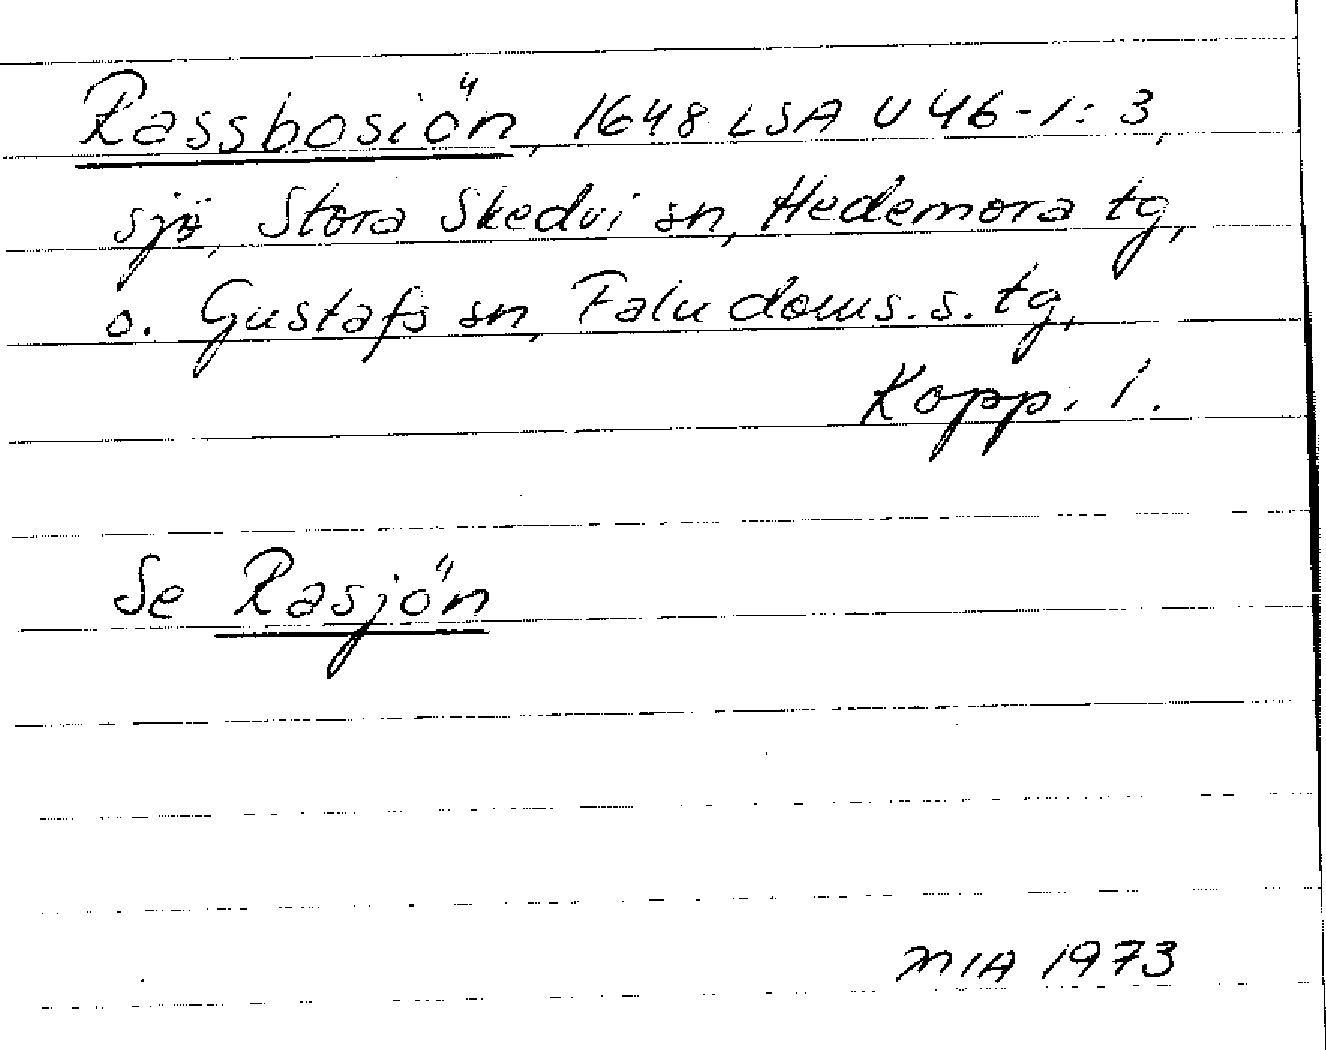 Rassbosiön, 1648 LSA U 46-1:3,
sjö, Stora Skedvi sn, Hedemora tg,
o. Gustafs sn, Falu doms. s. tg,
Kopp. l.
Se Rasjön
MIA 1973